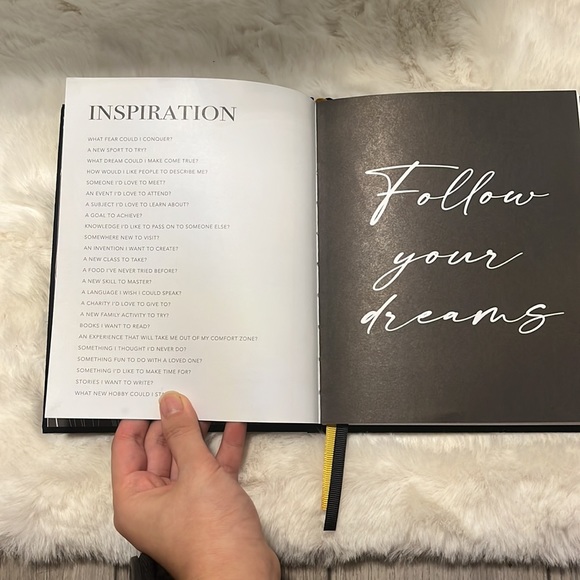 INSPIRATION
WHAT FEAR COULD I CONQUER?
A NEW SPORT TO TRY?
WHAT DREAM COULD I MAKE COME TRUE?
HOW WOULD I LIKE PEOPLE TO DESCRIBE ME?
SOMEONE I'D LOVE TO MEET?
AN EVENT I'D LOVE TO ATTEND?
A SUBJECT I'D LOVE TO LEARN ABOUT?
A GOAL TO ACHIEVE?
KNOWLEDGE I'D LIKE TO PASS ON TO SOMEONE ELSE?
SOMEWHERE NEW TO VISIT?
AN INVENTION I WANT TO CREATE?
A NEW CLASS TO TAKE?
A FOOD I'VE NEVER TRIED BEFORE?
A NEW SKILL TO MASTER?
A LANGUAGE I WISH I COULD SPEAK?
A CHARITY I'D LOVE TO GIVE TO?
A NEW FAMILY ACTIVITY TO TRY?
BOOKS I WANT TO READ?
AN EXPERIENCE THAT WILL TAKE ME OUT OF MY COMFORT ZONE?
SOMETHING I THOUGHT I'D NEVER DO?
SOMETHING FUN TO DO WITH A LOVED ONE?
SOMETHING I'D LIKE TO MAKE TIME FOR?
STORIES I WANT TO WRITE?
WHAT NEW HOBBY COULD I
Follow
your
dreams